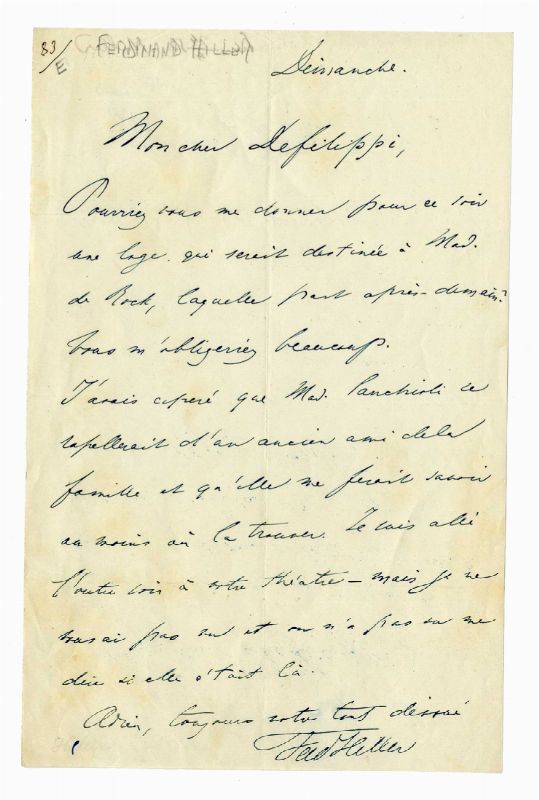 83/
E
FERDINAND HILLER
Dimanche.
Mon cher Defilippi,
Pourriez vous me donner pour ce soir
une loge qui serait destinée à Mad.
de Rock, laquelle part après-demain?
Vous m'obligeriez beaucoup.
J'avais esperé que Mad. se
rapellerait d'un ancien ami de la
famille et qu'elle me ferait savoir
au moins où la trouver. Je suis allé
l'autre soir à votre théatre – mais je ne
vous ai pas vu et on n'a pas su me
dire si elle s'était là.
Adieu, toujours votre tout dévoué
Ferd Hiller